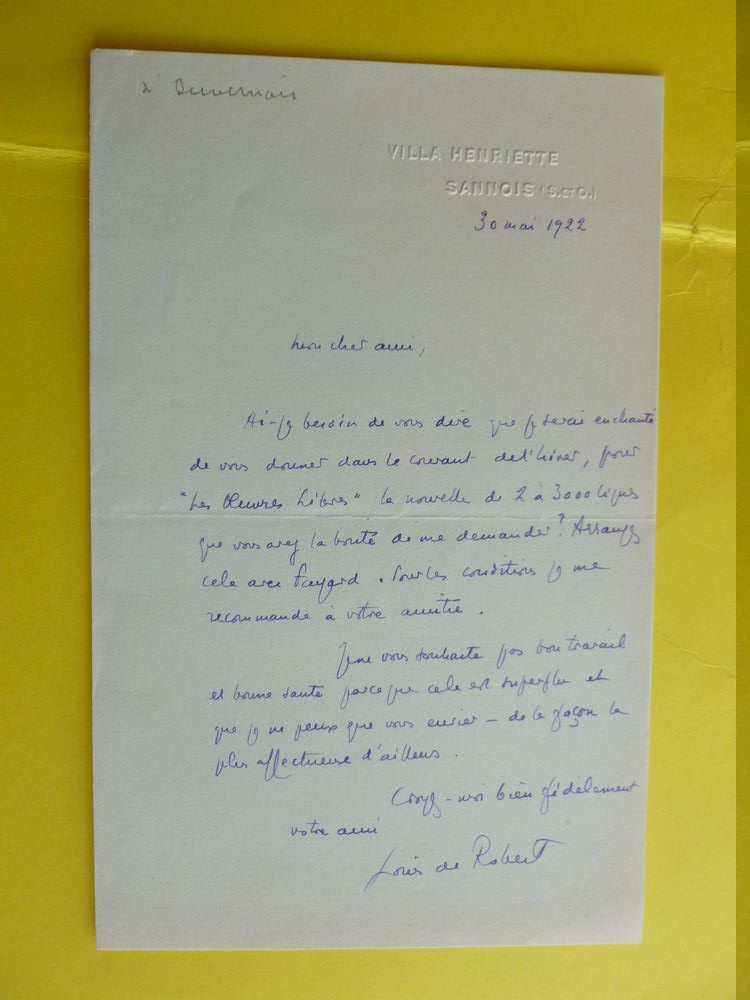 à Duvernois
VILLA HENRIETTE
SANNOIS (S. ET O.)
30 mai 1922
Mon cher ami,
Ai-je besoin de vous dire que je serai enchanté
de vous donner dans le courant de l'hiver, pour
"Les Œuvres Libres" la nouvelle de 2 à 3000 lignes
que vous avez la bonté de me demander? Arrangez
cela avec Fayard. Pour les conditions je me
recommande à votre amitié.
Je ne vous souhaite pas bon travail
et bonne santé parce que cela est superflu et
que je ne peux que vous envier – de la façon la
plus affectueuse d'ailleurs.
Croyez-moi bien fidèlement
votre ami
Louis de Robert